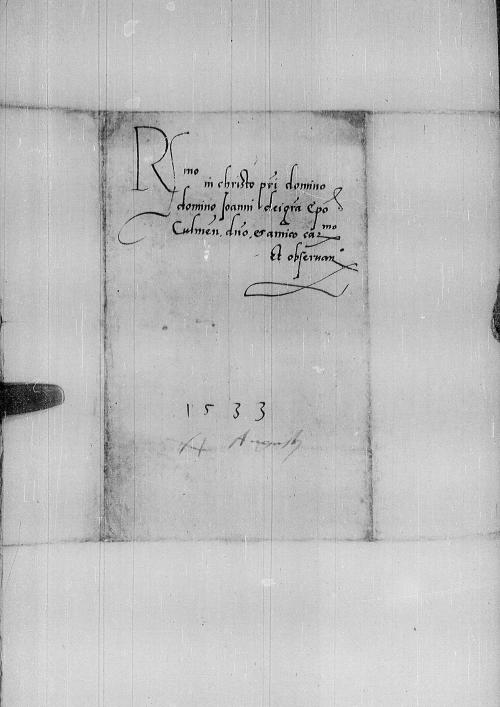 R mo
in christo pri domino
domino Joanni dei gra Epo
Culmen. dno, et amico car mo
Et obseruan
1533
Augusti